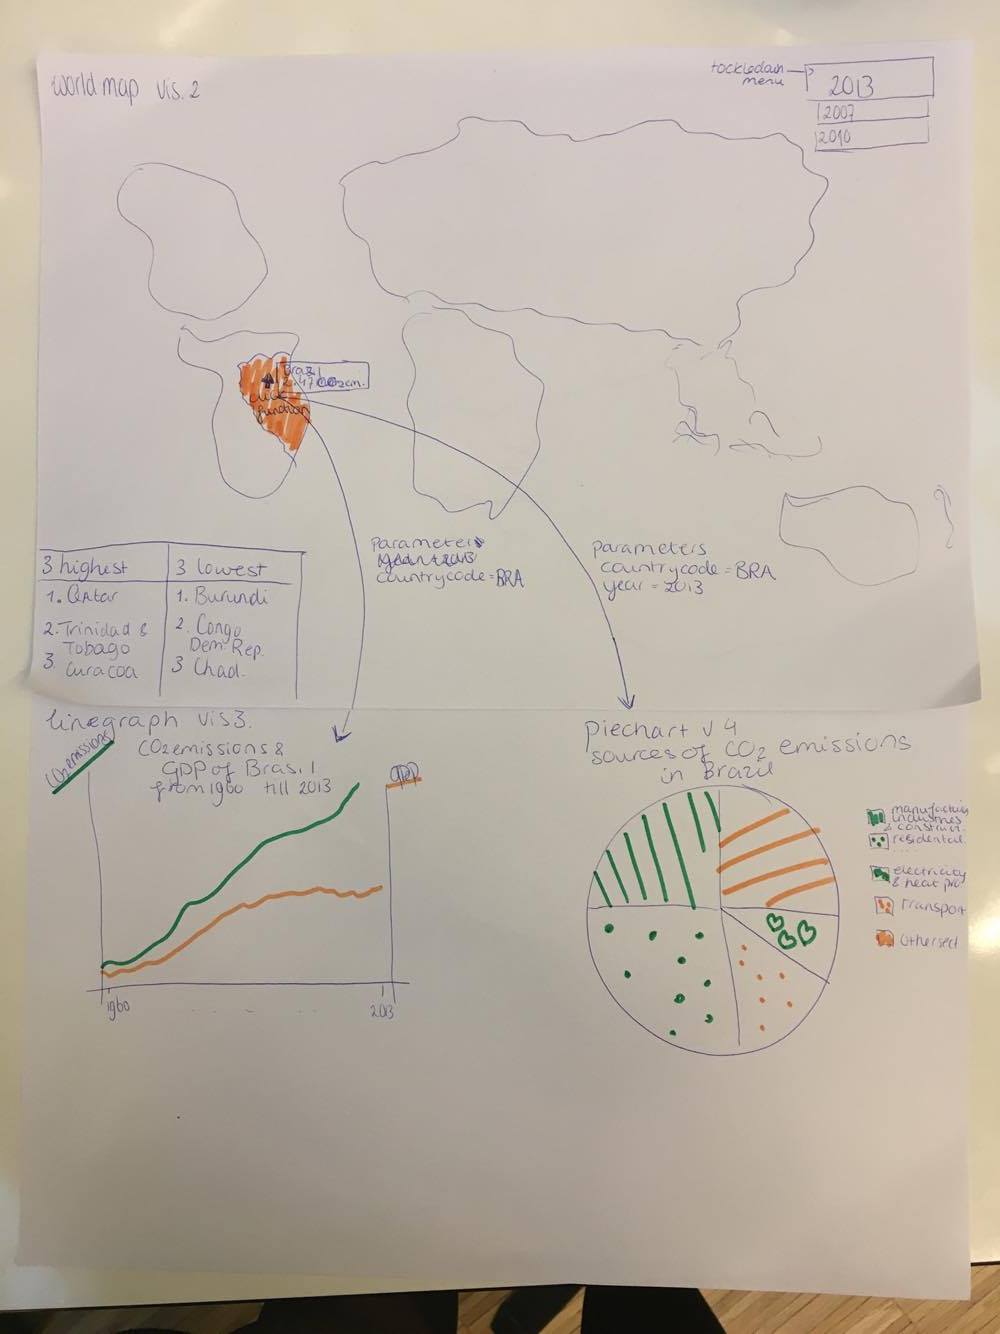 world map vis. 2
tockledown
menu
2013
2007
2010
Brazil
2.47 CO2 em.
click
function
parameters
year = 2013
countrycode = BRA
parameters
countrycode = BRA
year = 2013
3 highest
3 lowest
1. Qatar
1. Burundi
2. Trinidad &
Tobago
2. Congo
Dem. Rep.
3. Curacoa
3 Chad.
linegraph vis 3.
CO2 emissions
CO2 emissions &
GDP of Brasil
from 1960 till 2013
GDP
1960
2013
piechart v 4
sources of CO2 emissions
in Brazil
industries
& construct.
residental
electricity
& heat pro
transport
other sect